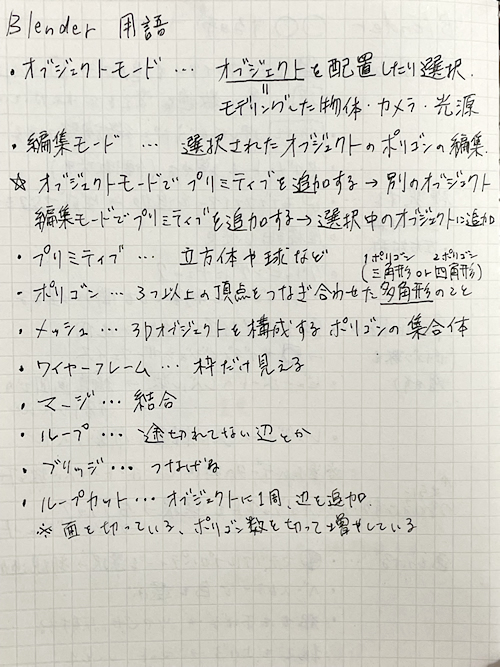 Blender 用語
・オブジェクトモード … オブジェクトを配置したり選択.
=
モデリングした物体・カメラ・光源
・編集モード … 選択されたオブジェクトのポリゴンの編集.
☆ オブジェクトモードでプリミティブを追加する→別のオブジェクト
編集モードでプリミティブを追加する→選択中のオブジェクトに追加
・プリミティブ … 立方体や球など
1ポリゴン 2ポリゴン
(三角形 or 四角形)
・ポリゴン … 3つ以上の頂点をつなぎ合わせた多角形のこと
・メッシュ … 3Dオブジェクトを構成するポリゴンの集合体
・ワイヤーフレーム … 枠だけ見える
・マージ … 結合
・ループ … 途切れてない辺とか
・ブリッジ … つなげる
・ループカット … オブジェクトに1周、辺を追加.
※ 面を切っている、ポリゴン数を切って増やしている